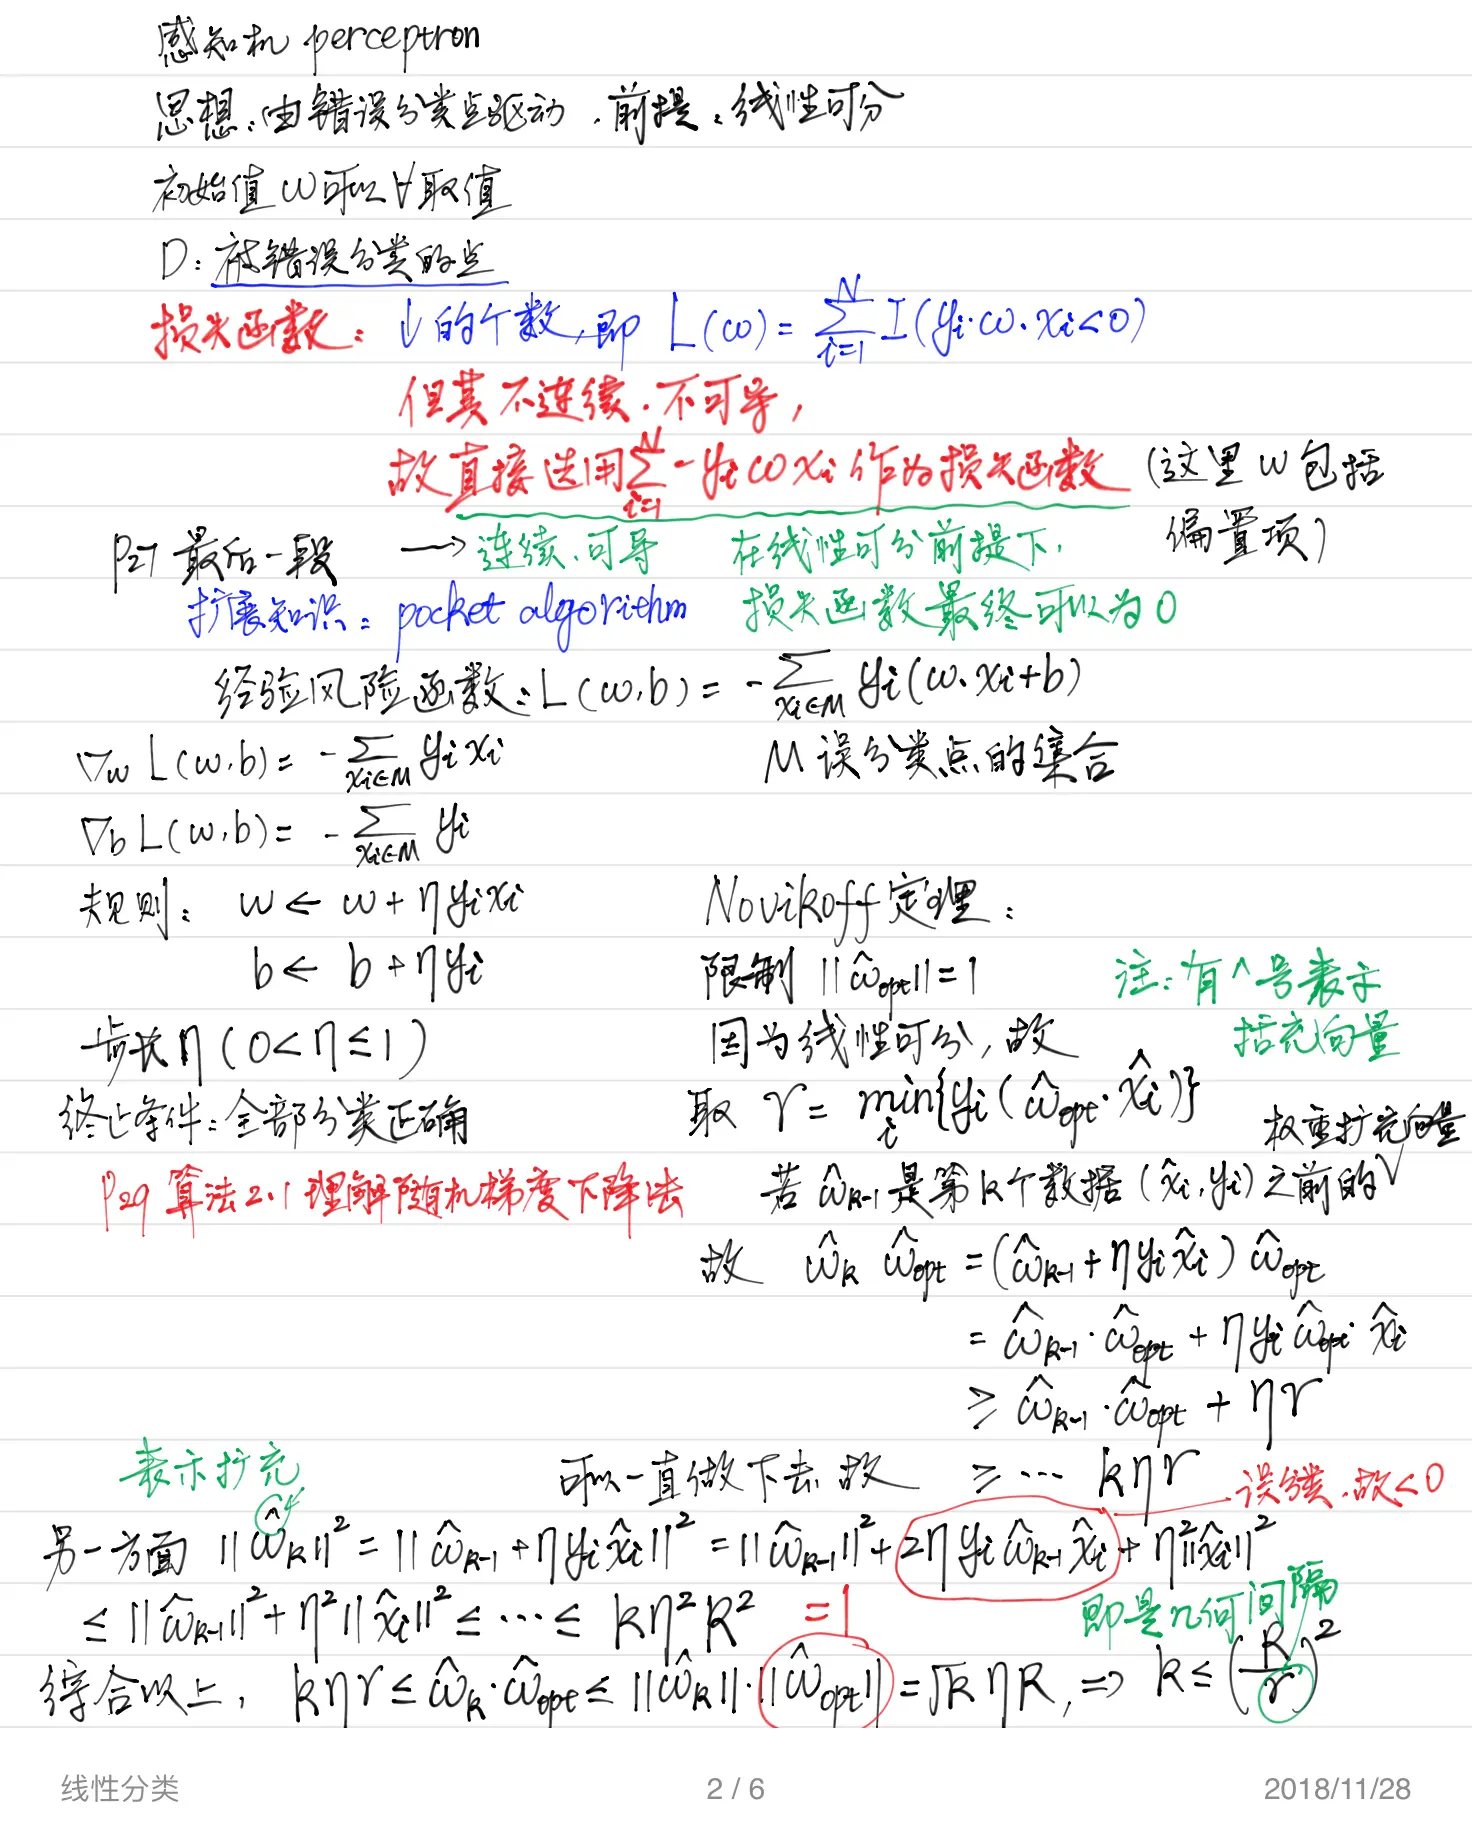 感知机 perceptron
思想:由错误分类点驱动.前提:线性可分
初始值 ω可以∀取值
D:被错误分类的点
损失函数: ↓的个数,即 L(ω)=∑_{i=1}^{N} I(yi·ω·xi<0)
但其不连续.不可导,
故直接选用∑_{i=1}^{N} -yiωxi 作为损失函数 (这里w包括
偏置项)
P27 最后一段 → 连续、可导 在线性可分前提下,
扩展知识: pocket algorithm 损失函数最终可以为0
经验风险函数:L(w,b)= -∑_{xi∈M} yi(w·xi+b)
∇w L(w,b)= -∑_{xi∈M} yixi M 误分类点的集合
∇b L(w,b)= -∑_{xi∈M} yi
规则: w ← w+ηyixi
b ← b+ηyi
步长η(0<η≤1)
终止条件:全部分类正确
P29 算法2.1 理解随机梯度下降法
Novikoff定理:
限制 ||ŵopt||=1 注:有^号表示
括充向量
因为线性可分,故
取 r= min_i{yi(ŵopt·x̂i)}
权重扩充向量
若 ŵk-1 是第k个数据(x̂i,yi)之前的√
故 ŵk ŵopt =(ŵk-1+ηyix̂i) ŵopt
= ŵk-1·ŵopt + ηyiŵopt·x̂i
≥ ŵk-1·ŵopt + ηr
可以一直做下去.故 ≥ ··· kηr
误分类.故<0
表示扩充
另一方面 ||ŵk||²=||ŵk-1+ηyix̂i||²=||ŵk-1||²+2ηyiŵk-1x̂i+η²||x̂i||²
≤||ŵk-1||²+η²||x̂i||²≤···≤ kη²R² =1 即是几何间隔
综合以上, kηr≤ŵk·ŵopt≤||ŵk||·||ŵopt||=√kηR, ⇒ k≤(R/r)²
线性分类 2 / 6 2018/11/28